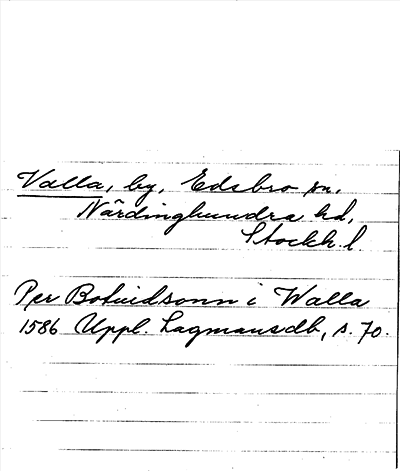 Valla, by, Edsbro sn.
Närdinghundra hd,
Stockh. l.
Per Botvidsonn i Walla
1586 Uppl. Lagmansdb, s. 70.